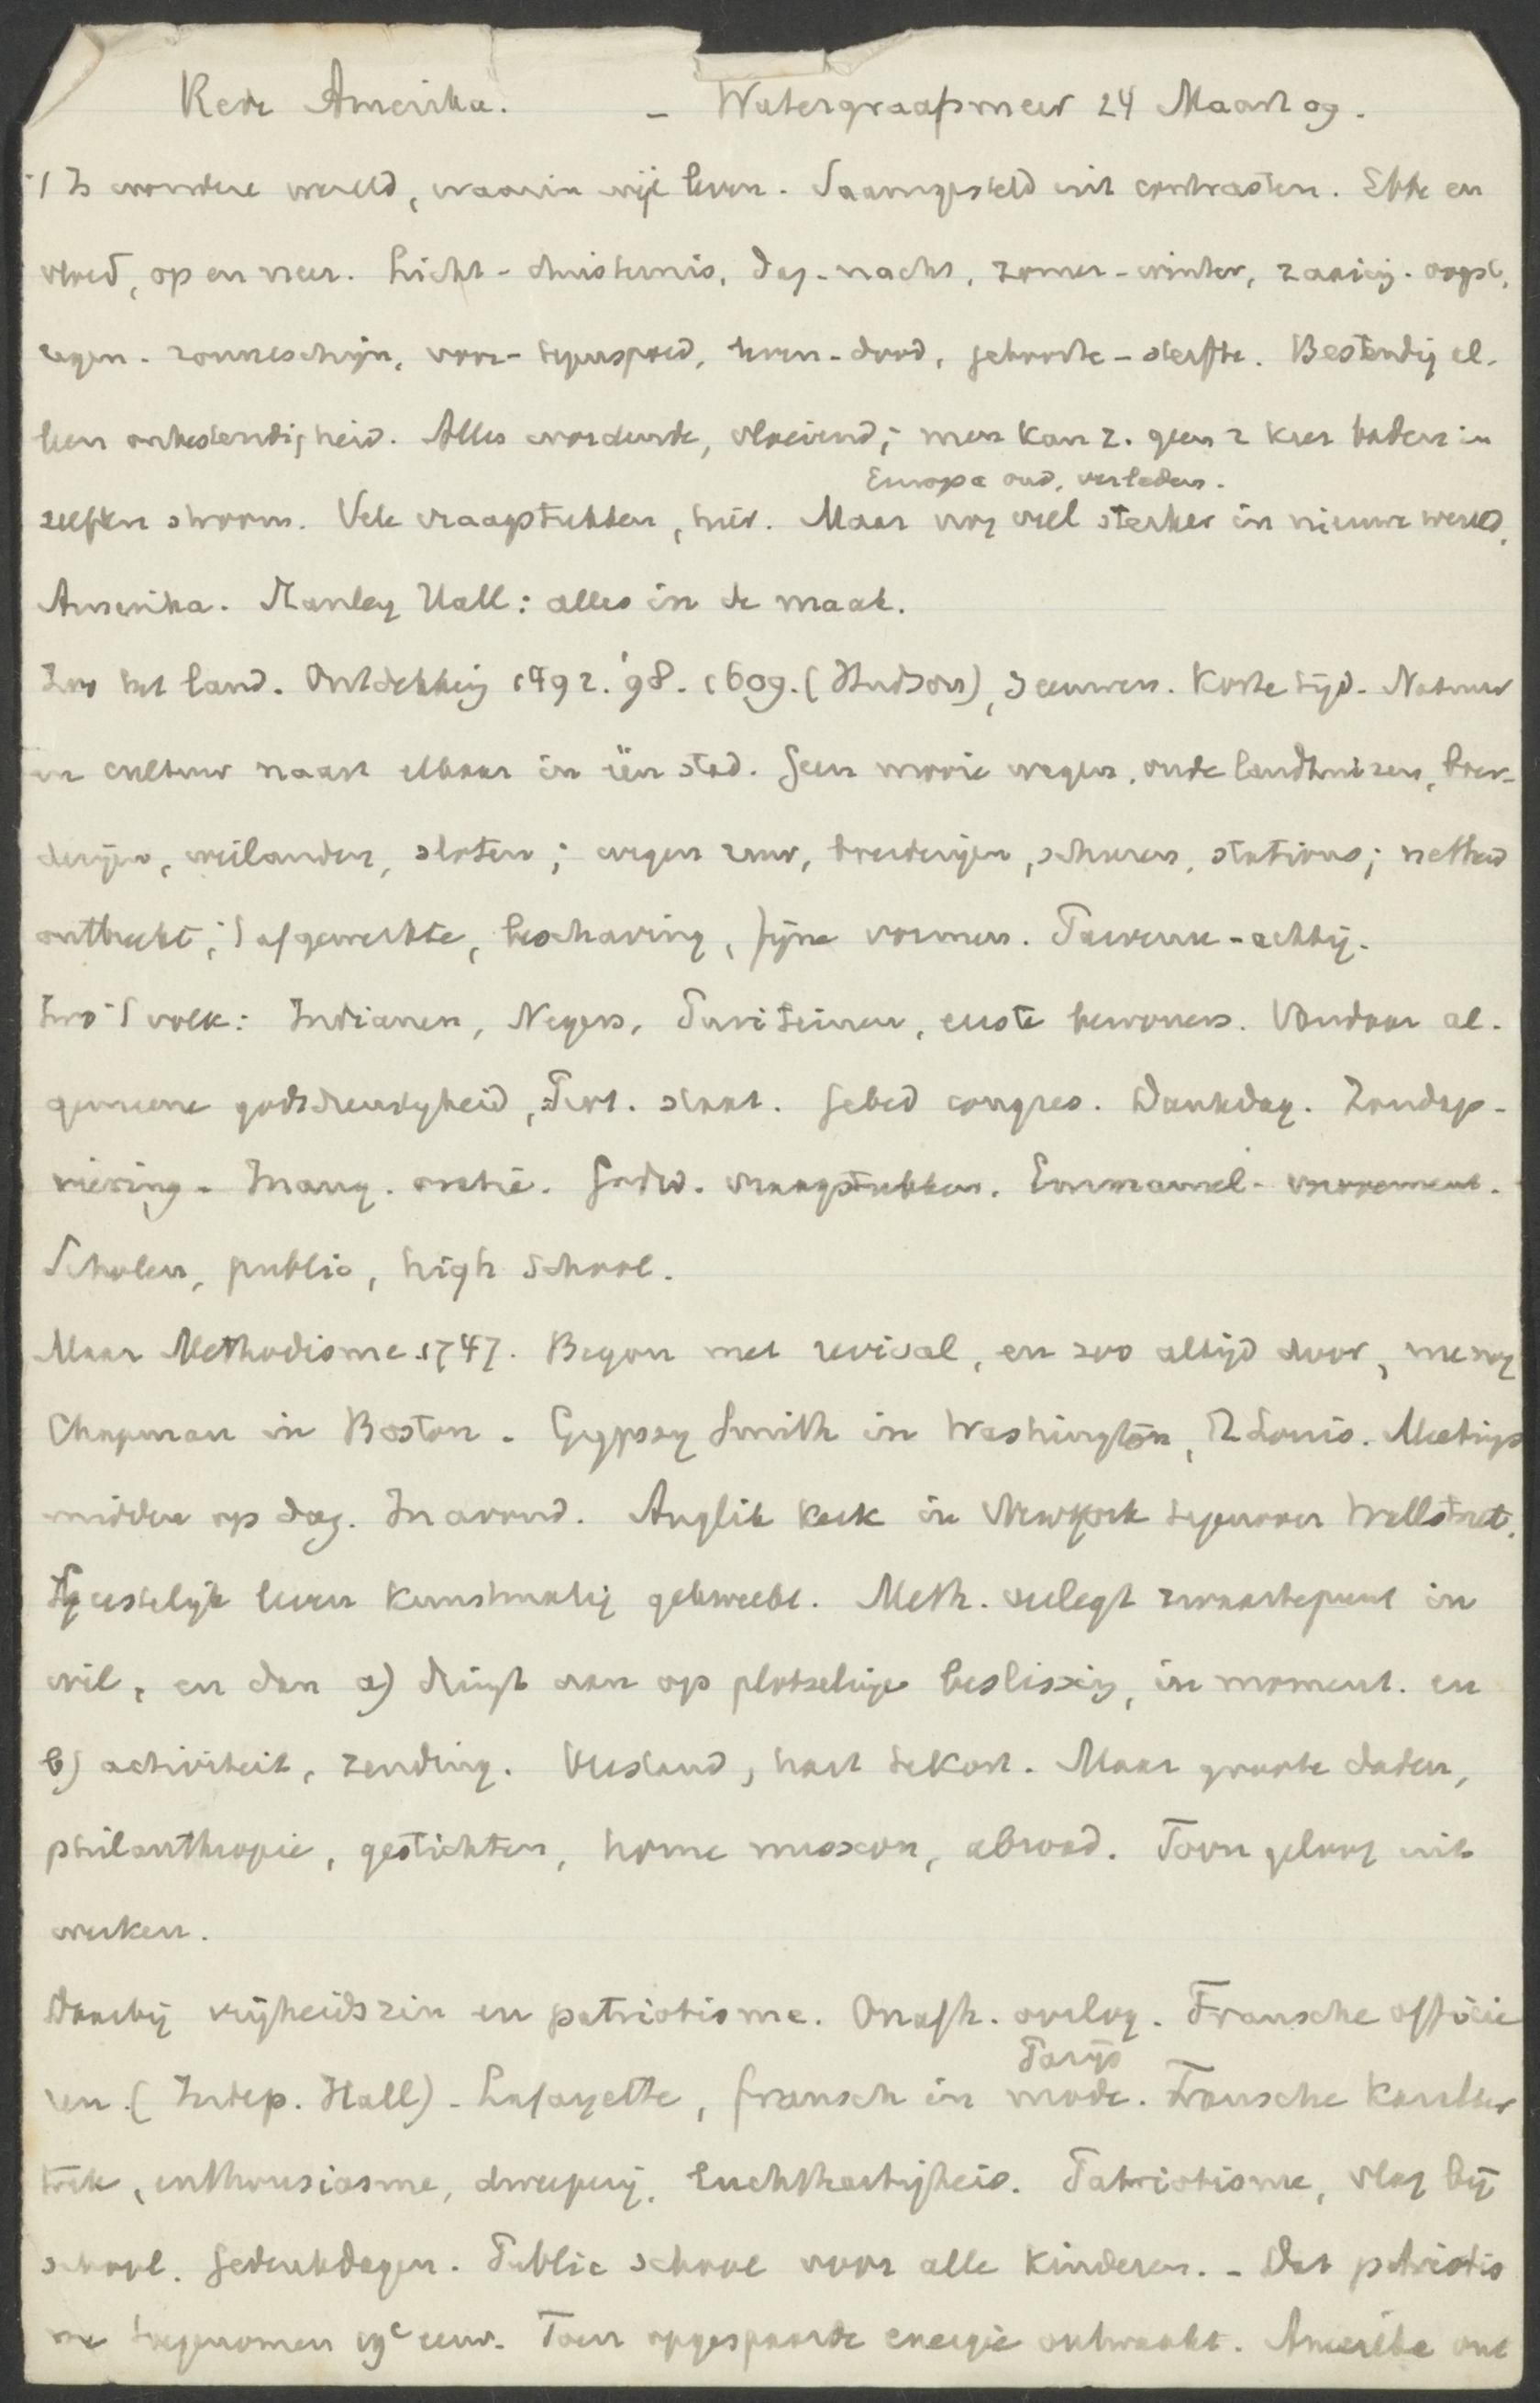 Rede Amerika. – Watergraafsmeer 24 Maart 09.
't Is wondere wereld, waarin wij leven. Saamgesteld uit contrasten. Ebbe en
vloed, op en neer. Licht - duisternis, dag - nacht, zomer - winter, zaaiing - oogst,
regen - zonneschijn, voor - tegenspoed, leven - dood, geboorte - sterfte. Bestendig al-
leen onbestendigheid. Alles wordende, vloeiend; men kan z. geen 2 keer baden in
Europa oud, verleden.
zelfden stroom. Vele vraagstukken, hier. Maar nog veel sterker in nieuwe wereld,
Amerika. Stanley Hall: alles in de maak.
Zoo het land. Ontdekking 1492. '98. 1609. (Hudson), 3 eeuwen. Korte tijd. Natuur
en cultuur naast elkaar in één stad. Geen mooie wegen, oude landhuizen, boer-
derijen, weilanden, sloten; wegen ruw, boerderijen, schuren, stations; netheid
ontbreekt; 't afgewerkte, beschaving, fijne vormen. Parvenu-achtig.
Zoo 't volk: Indianen, Negers, Puriteinen, eerste bewoners. Vandaar al-
gemeene godsdienstigheid, Prot. staat. Gebed congres. Dankdag. Zondags-
viering. Inaug. oratie. Godsd. vraagstukken. Emmanuel-movement.
Scholen, public, high school.
Maar Methodisme 1747. Begon met revival, en zoo altijd door, nu nog
Chapman in Boston. Gypsy Smith in Washington, St Louis. Meetings
midden op dag. In avond. Anglik. kerk in Newyork tegenover Wallstreet.
Geestelijk leven kunstmatig gekweekt. Meth. verlegt zwaartepunt in
wil, en dan a) dringt aan op plotselinge beslissing, in moment. en
b) activiteit, zending. Verstand, hart tekort. Maar groote daden,
philanthropie, gestichten, home mission, abroad. Toon geloof uit
werken.
Daarbij vrijheidszin en patriotisme. Onafh. oorlog. Fransche officie
Parijs
ren (Indep. Hall) - Lafayette, fransch in mode. Fransche karakter
trek, enthousiasme, dweeperij, luchthartigheid. Patriotisme, vlag bij
school. Gedenkdagen. Public school voor alle kinderen. - Dat patriotis
me toegenomen 19e eeuw. Toen opgespaarde energie ontwaakt. Amerika ont